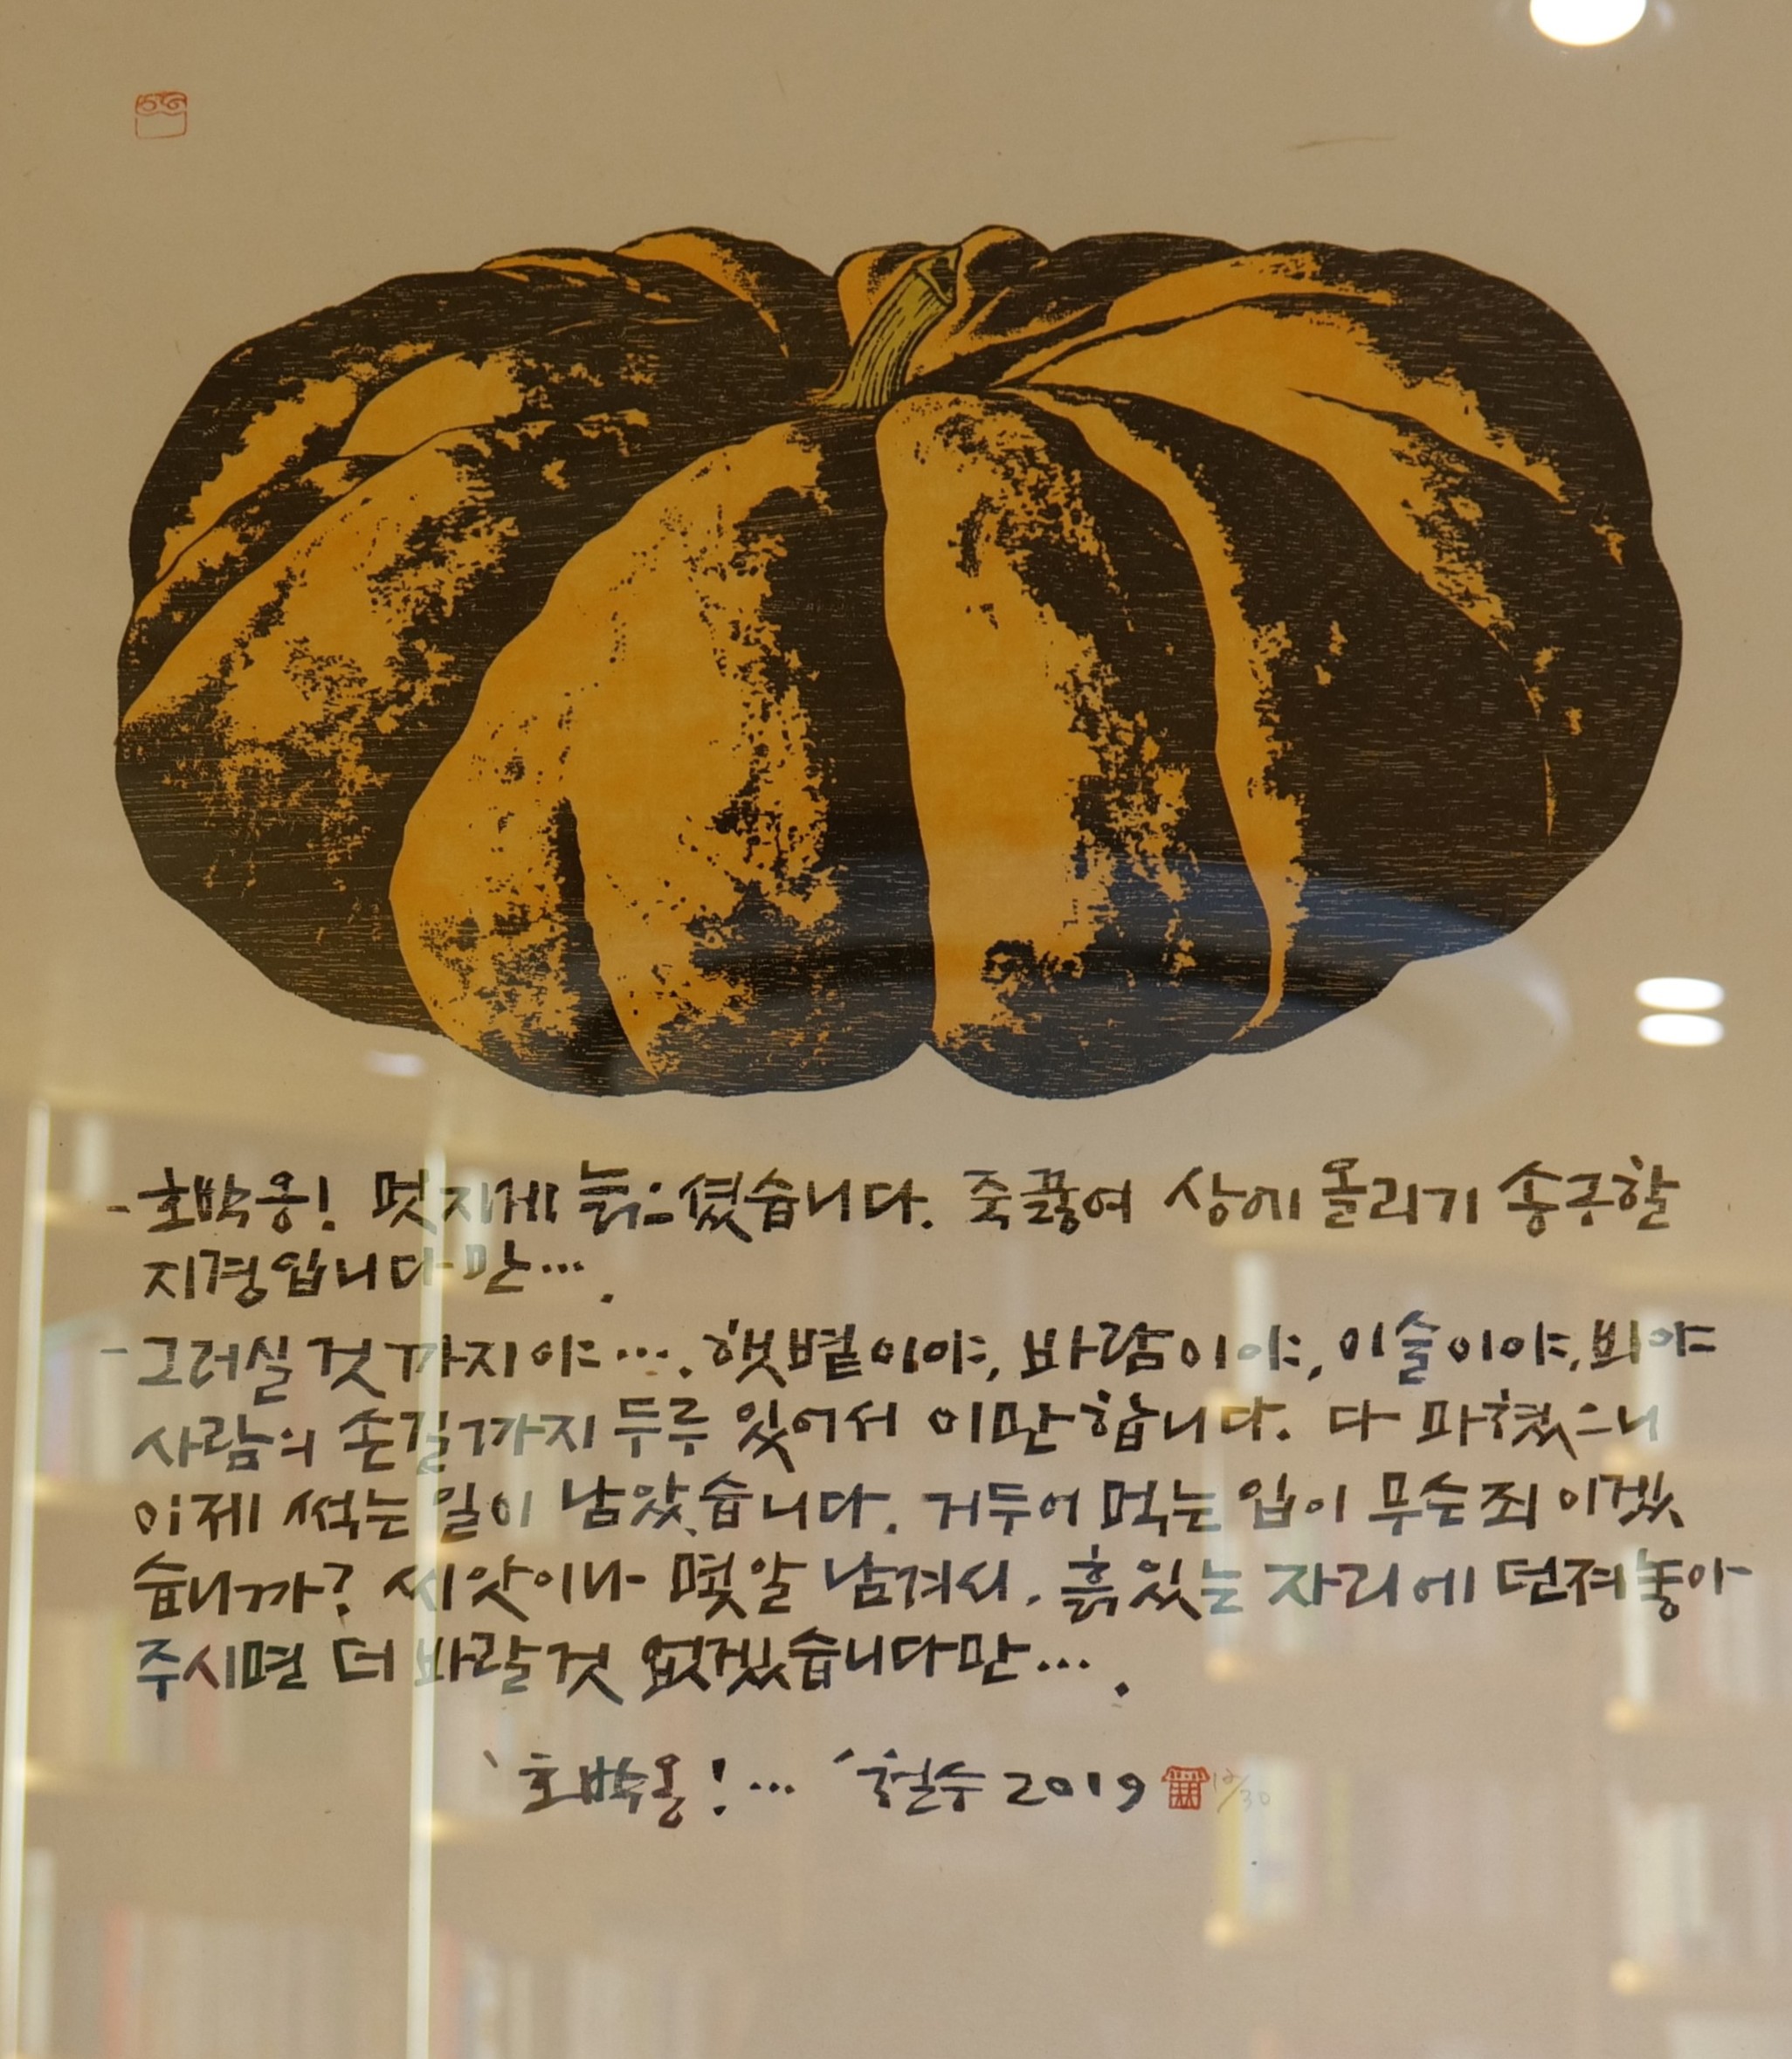 - 호박옹! 멋지게 늙으셨습니다. 죽 끓여 상에 올리기 송구할
지경입니다만….
- 그러실 것까지야…. 햇볕이야, 바람이야, 이슬이야, 비야
사람의 손길까지 두루 있어서 이만합니다. 다 파혔으니
이제 썩는 일이 남았습니다. 거두어 먹는 입이 무슨 죄이겠
습니까? 씨앗이나 몇 알 남겨서, 흙 있는 자리에 던져놓아
주시면 더 바랄 것 없겠습니다만….
'호박옹!…' 철수 2019 12/30